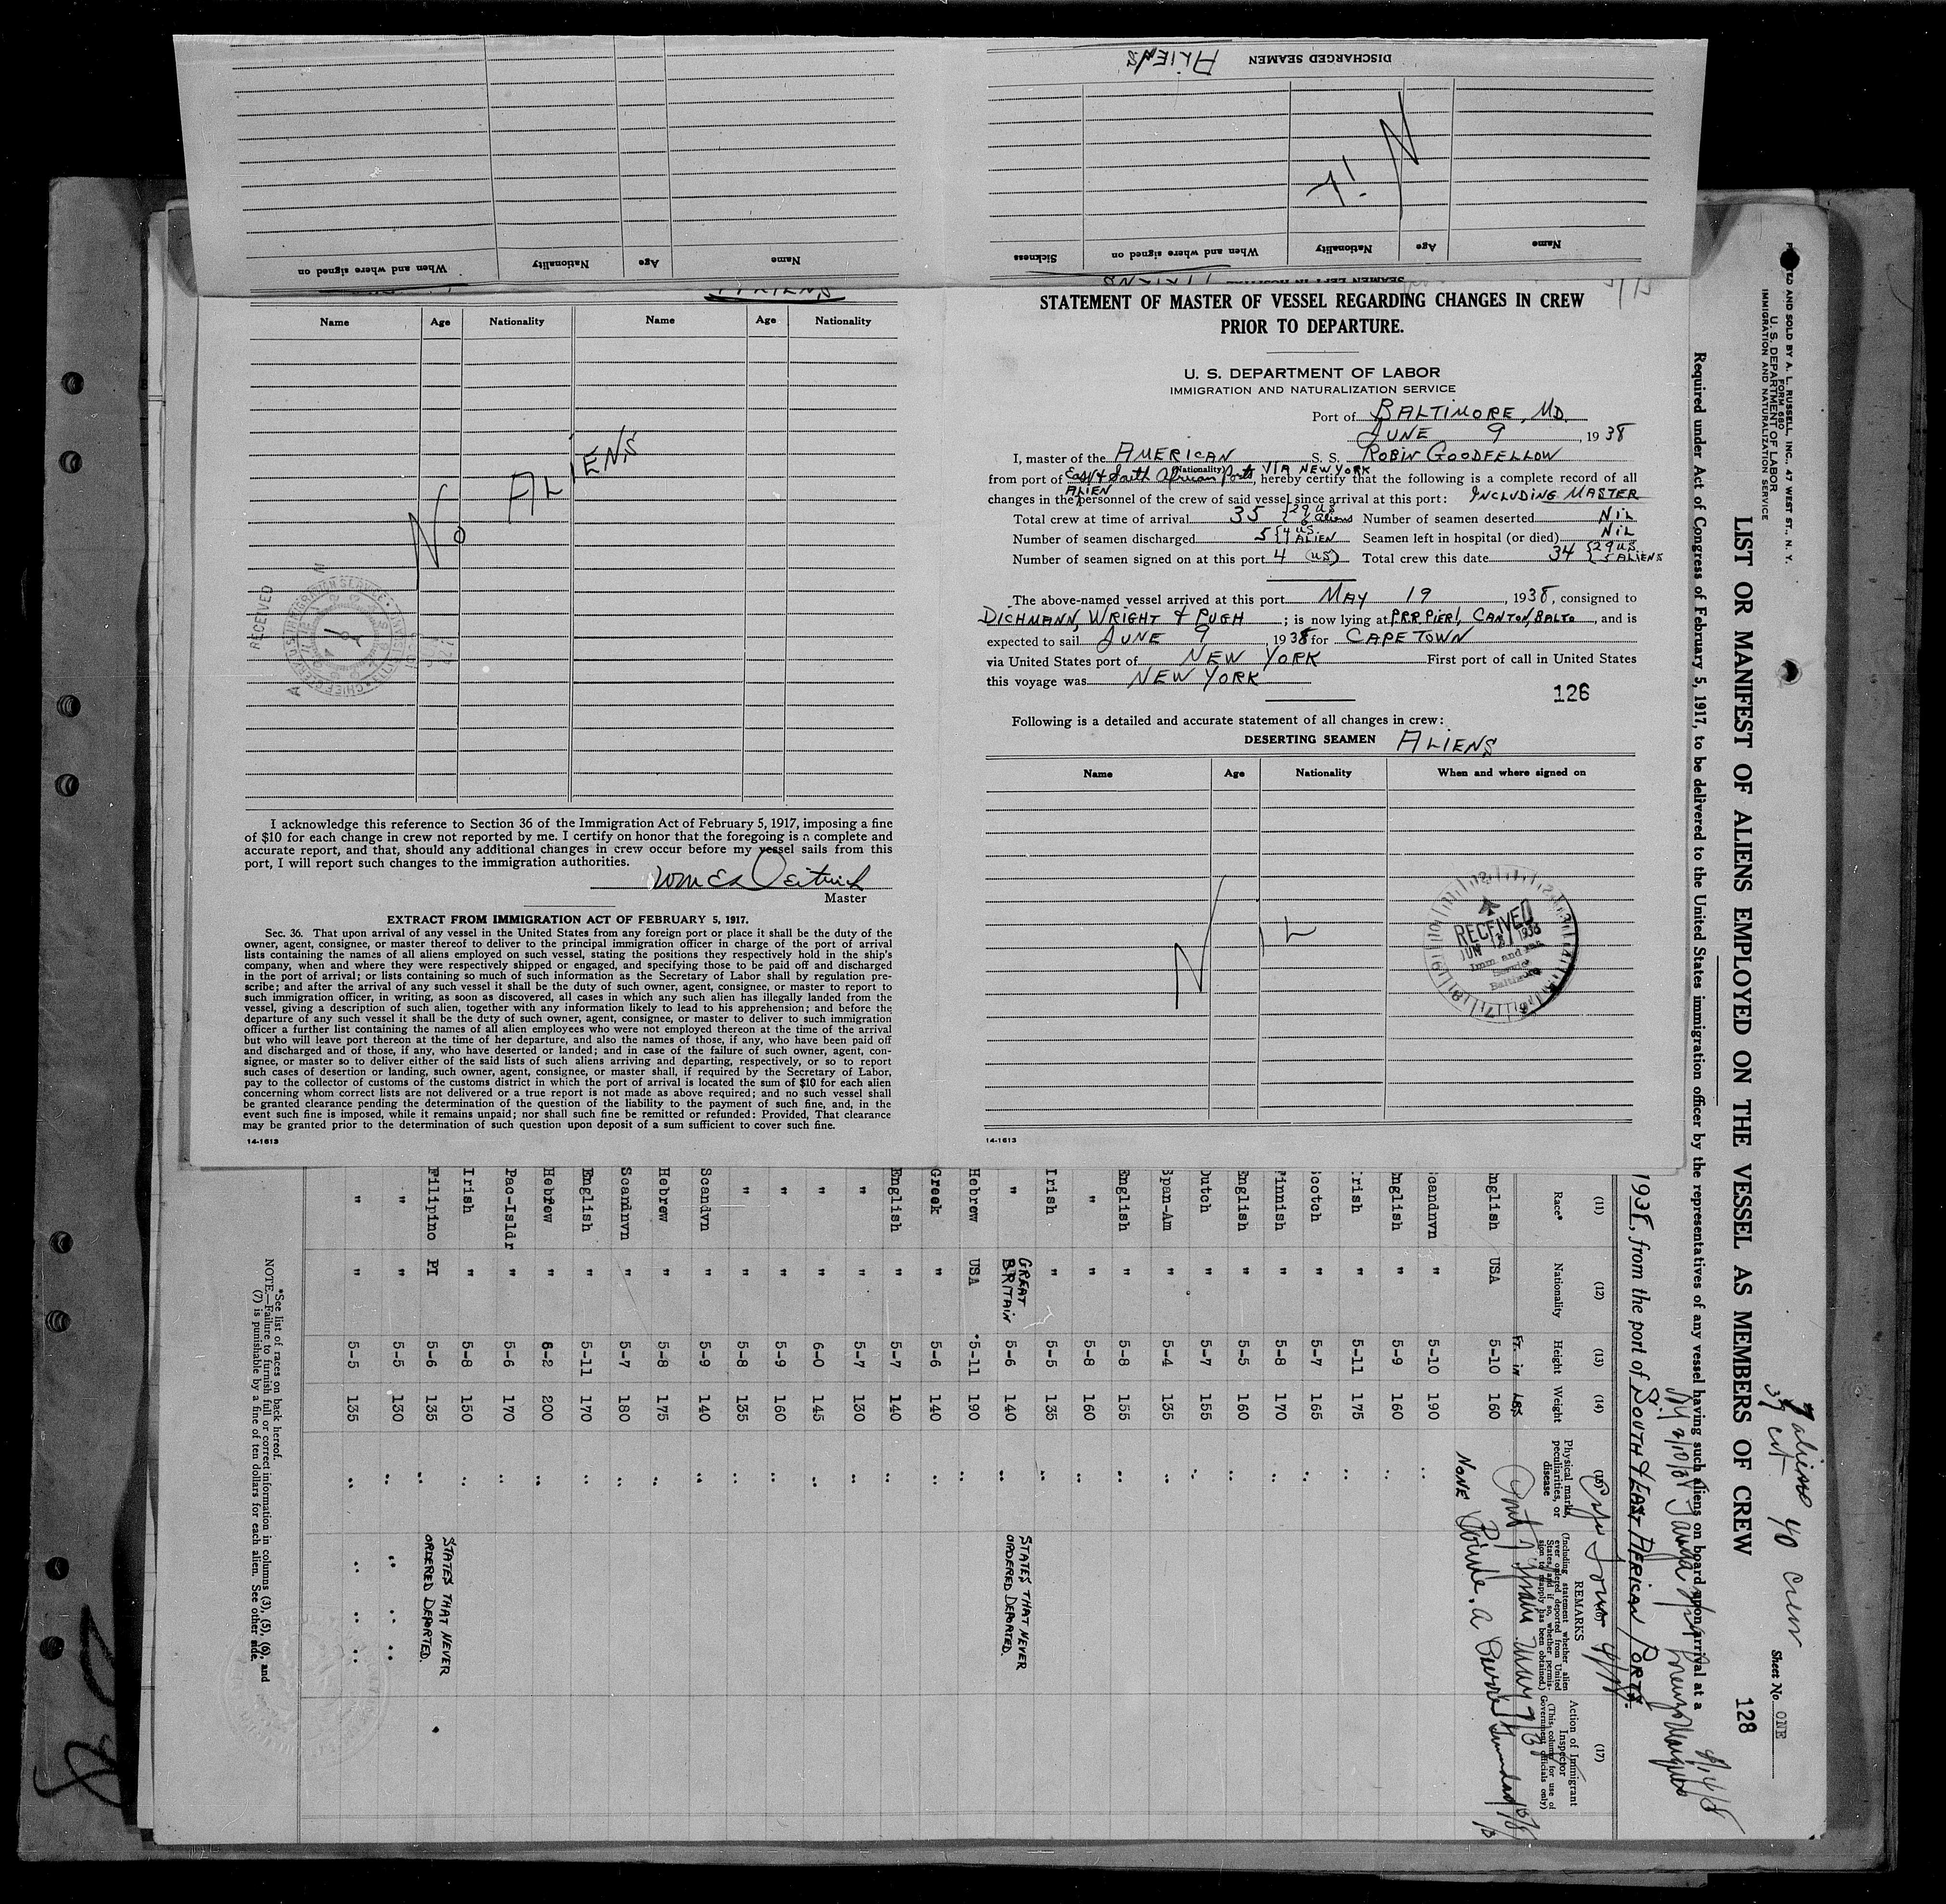 DISCHARGED SEAMEN ALIENS
Name Age Nationality When and where signed on
Name Age Nationality When and where signed on Sickness
ALIENS
Name Age Nationality Name Age Nationality
No ALIENS
RECEIVED
I acknowledge this reference to Section 36 of the Immigration Act of February 5, 1917, imposing a fine
of $10 for each change in crew not reported by me. I certify on honor that the foregoing is a complete and
accurate report, and that, should any additional changes in crew occur before my vessel sails from this
port, I will report such changes to the immigration authorities.
Master
EXTRACT FROM IMMIGRATION ACT OF FEBRUARY 5, 1917.
Sec. 36. That upon arrival of any vessel in the United States from any foreign port or place it shall be the duty of the
owner, agent, consignee, or master thereof to deliver to the principal immigration officer in charge of the port of arrival
lists containing the names of all aliens employed on such vessel, stating the positions they respectively hold in the ship's
company, when and where they were respectively shipped or engaged, and specifying those to be paid off and discharged
in the port of arrival; or lists containing so much of such information as the Secretary of Labor shall by regulation pre-
scribe; and after the arrival of any such vessel it shall be the duty of such owner, agent, consignee, or master to report to
such immigration officer, in writing, as soon as discovered, all cases in which any such alien has illegally landed from the
vessel, giving a description of such alien, together with any information likely to lead to his apprehension; and before the
departure of any such vessel it shall be the duty of such owner, agent, consignee, or master to deliver to such immigration
officer a further list containing the names of all alien employees who were not employed thereon at the time of the arrival
but who will leave port thereon at the time of her departure, and also the names of those, if any, who have been paid off
and discharged and of those, if any, who have deserted or landed; and in case of the failure of such owner, agent, con-
signee, or master so to deliver either of the said lists of such aliens arriving and departing, respectively, or so to report
such cases of desertion or landing, such owner, agent, consignee, or master shall, if required by the Secretary of Labor,
pay to the collector of customs of the customs district in which the port of arrival is located the sum of $10 for each alien
concerning whom correct lists are not delivered or a true report is not made as above required; and no such vessel shall
be granted clearance pending the determination of the question of the liability to the payment of such fine, and, in the
event such fine is imposed, while it remains unpaid; nor shall such fine be remitted or refunded: Provided, That clearance
may be granted prior to the determination of such question upon deposit of a sum sufficient to cover such fine.
14-1613
STATEMENT OF MASTER OF VESSEL REGARDING CHANGES IN CREW
PRIOR TO DEPARTURE.
U. S. DEPARTMENT OF LABOR
IMMIGRATION AND NATURALIZATION SERVICE
Port of BALTIMORE, MD.
JUNE 9, 1938
I, master of the AMERICAN S. S. ROBIN GOODFELLOW
(Nationality)
from port of East & South African Ports VIA NEW YORK, hereby certify that the following is a complete record of all
changes in the ALIEN personnel of the crew of said vessel since arrival at this port: INCLUDING MASTER
Total crew at time of arrival 35 {29 US 6 aliens Number of seamen deserted NIL
Number of seamen discharged 5 {4 US 1 ALIEN Seamen left in hospital (or died) NIL
Number of seamen signed on at this port 4 (US) Total crew this date 34 {29 US 5 ALIENS
The above-named vessel arrived at this port MAY 19, 1938, consigned to
DICHMANN, WRIGHT & PUGH; is now lying at PRR PIER 1, CANTON, BALTO, and is
expected to sail JUNE 9 1938 for CAPE TOWN
via United States port of NEW YORK First port of call in United States
this voyage was NEW YORK
126
Following is a detailed and accurate statement of all changes in crew:
DESERTING SEAMEN ALIENS
Name Age Nationality When and where signed on
NIL
RECEIVED
JUN 1938
Imm. and Nat.
Service
Baltimore
14-1613
AND SOLD BY A. L. RUSSELL, INC., 47 WEST ST., N. Y.
FORM 680
U. S. DEPARTMENT OF LABOR
IMMIGRATION AND NATURALIZATION SERVICE
7 aliens 40 crew
Sheet No. ONE
LIST OR MANIFEST OF ALIENS EMPLOYED ON THE VESSEL AS MEMBERS OF CREW
128
Required under Act of Congress of February 5, 1917, to be delivered to the United States immigration officer by the representatives of any vessel having such aliens on board upon arrival at a
1938, from the port of SOUTH & EAST AFRICAN PORTS
(11) (12) (13) (14) (15) (17)
Race* Nationality Height Weight Physical marks, peculiarities, or disease REMARKS Action of Immigrant Inspector
(Including statement whether alien ever ordered deported from United States, and if so, whether permission to reapply has been obtained.) (This column for use of Government officials only)
Ft. in Lbs
nglish USA 5-10 160 NONE
candnvn " 5-10 190 "
nglish " 5-9 160 "
rish " 5-11 175 "
cotch " 5-7 165 "
innish " 5-8 170 "
English " 5-5 160 "
utch " 5-7 155 "
Span-Am " 5-4 135 "
English " 5-8 155 "
" " 5-8 160 "
Irish " 5-5 135 "
" GREAT BRITAIN 5-6 140 " STATES THAT NEVER ORDERED DEPORTED.
Hebrew USA 5-11 190 "
Greek " 5-6 140 "
English " 5-7 140 "
" " 5-7 130 "
" " 6-0 145 "
" " 5-9 160 "
" " 5-8 135 "
Scandvn " 5-9 140 "
Hebrew " 5-8 175 "
Scandnvn " 5-7 180 "
English " 5-11 170 "
Hebrew " 6-2 200 "
Pac-Isldr " 5-6 170 "
Irish " 5-8 150 "
Filipino PI 5-6 135 " STATES THAT NEVER ORDERED DEPORTED.
" " 5-5 130 " " " "
" " 5-5 135 " " " "
*See list of races on back hereof.
NOTE.—Failure to furnish full or correct information in columns (3), (5), (6), and
(7) is punishable by a fine of ten dollars for each alien. See other side.